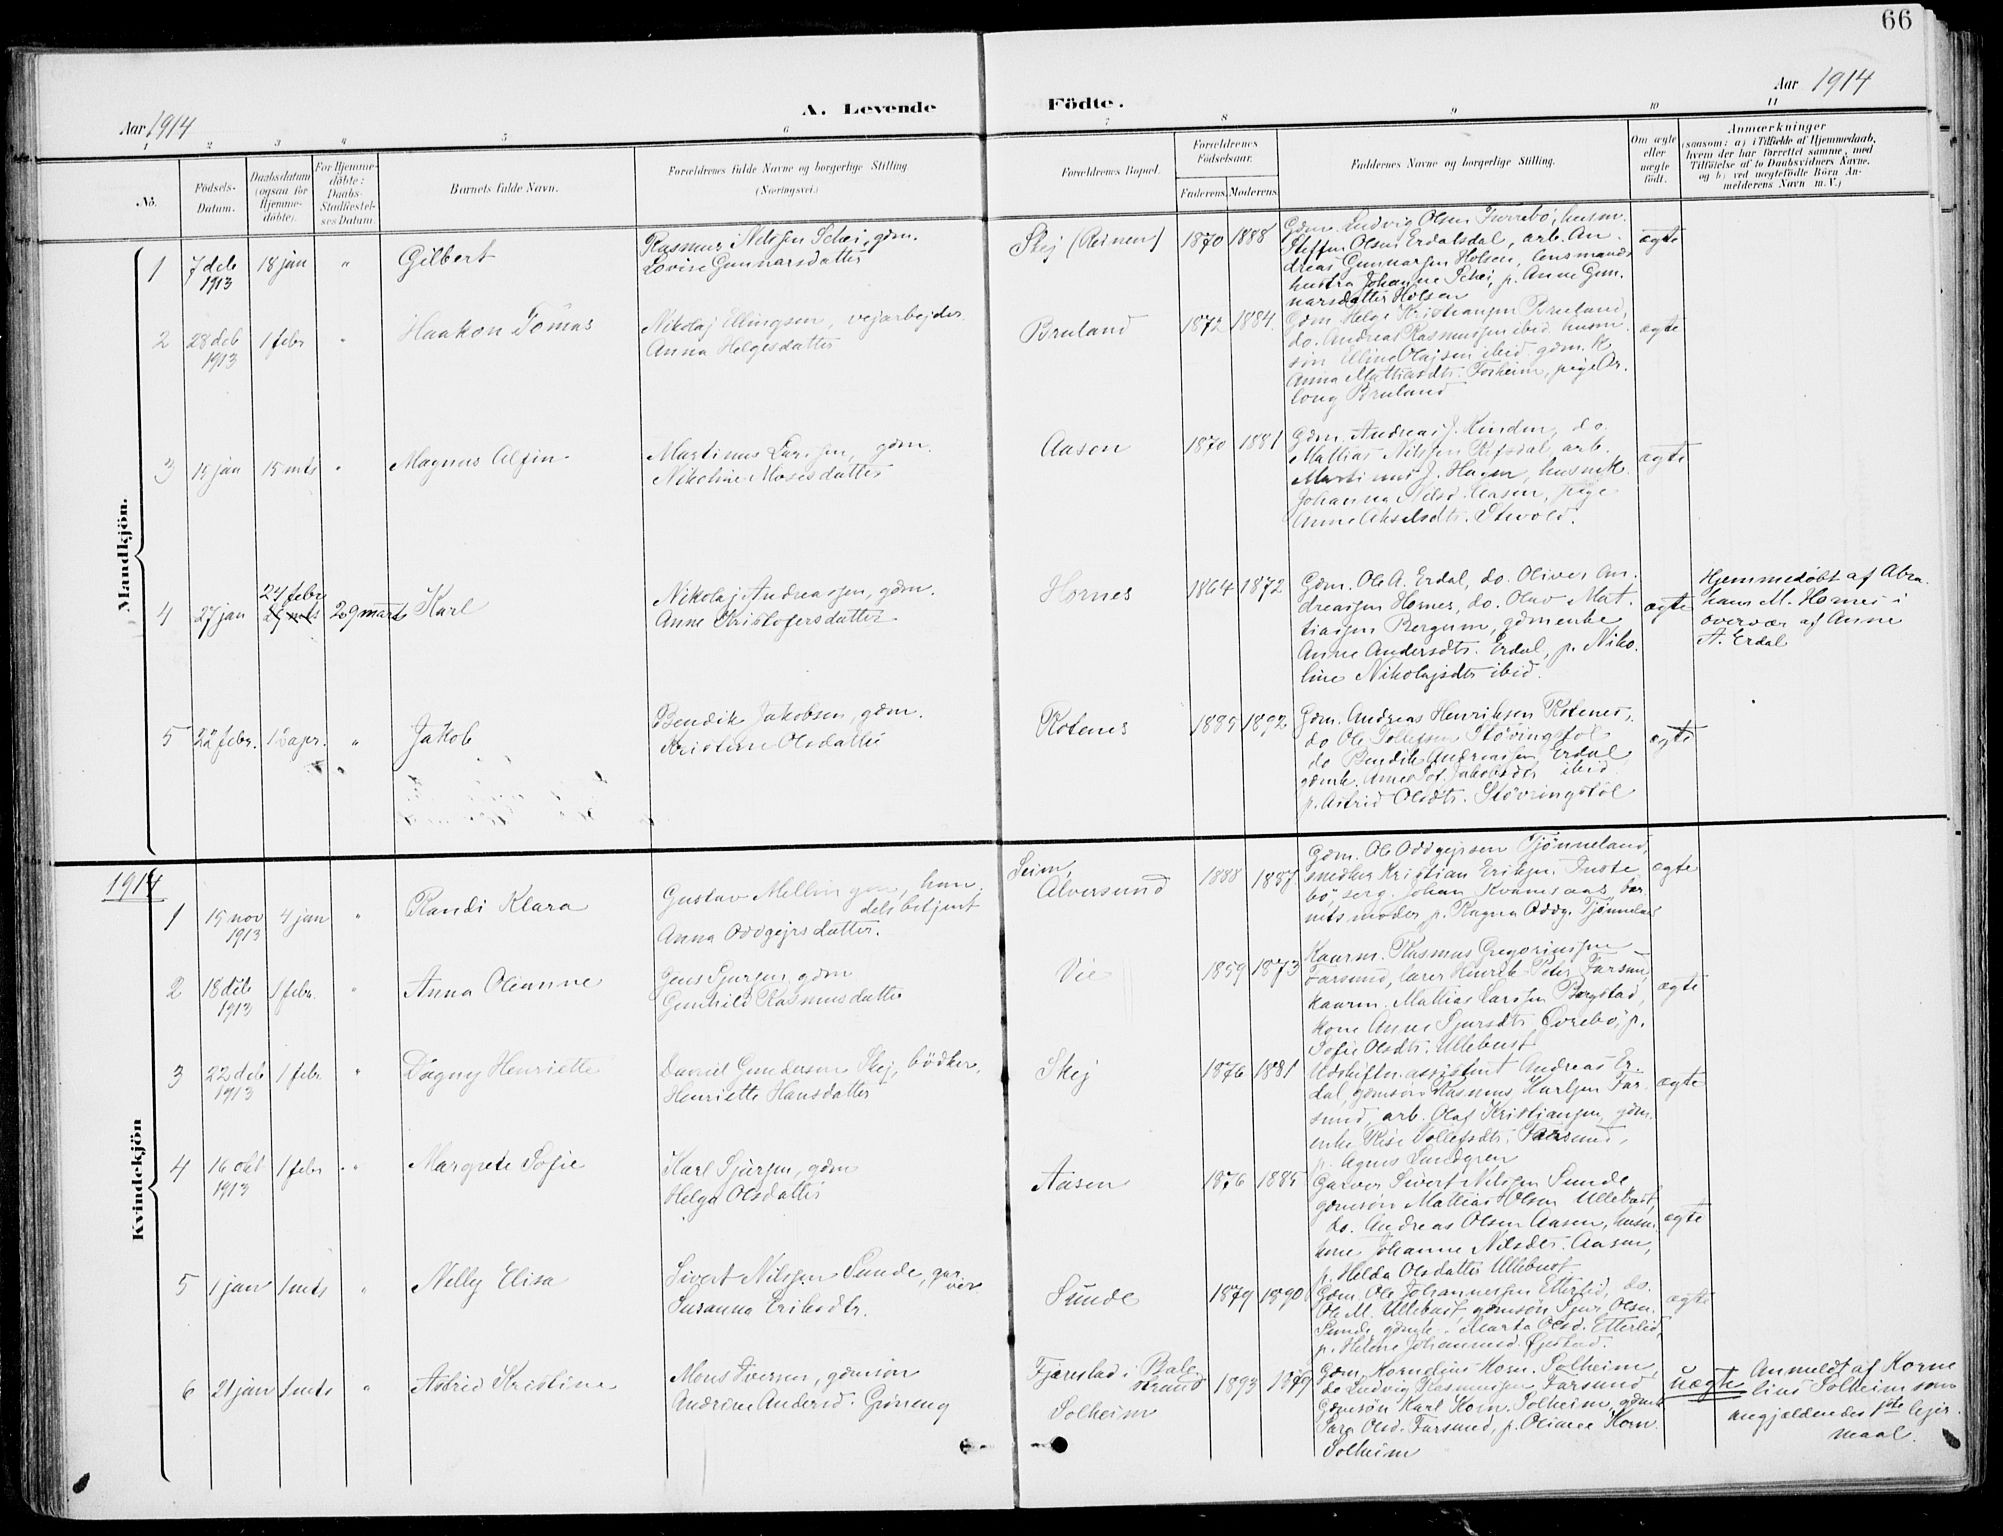 66
Aar 1914
A. Levende Födte.
Aar 1914
1 2 3 4 5 6 7 8 9 10 11
No.
Födsels-Datum.
Daabsdatum (ogsaa for Hjemme-döbte).
For Hjemme-döbte: Daabs-Stadfæstel-ses Datum.
Barnets fulde Navn.
Forældrenes fulde Navne og borgerlige Stilling
(Næringsvei.)
Forældrenes Bopæl.
Forældrenes Födselsaar.
Faderens. Moderens.
Faddernes Navne og borgerlige Stilling.
Om ægte eller uægte födt.
Anmærkninger
(saasom: a) i Tilfælde af Hjemmedaab, hvem der har forrettet samme, med Tilföielse af to Daabsvidners Navne, og b) ved uægtefödte Börn An-melderens Navn m. V.)
Mandkjön.
1 7 deb 1913 18 jan " Gilbert
Rasmus Nilssen Schei, gdm.
Lovise Gunnarsdatter
Skej (Reinen) 1870 1888
Gdm. Ludvig Olsen Furrebö, husm.
Steffen Olsen Erdalsdal, arb. An-
dreas Gunnarsen Holsen, lensmands
hustru Johanne Schei, p. Anne Gun-
narsdatter Holsen
ægte
2 28 deb 1913 1 febr " Haakon Tomas
Nikolaj Ellingsen, vejarbejder
Anna Helgesdatter
Bruland 1872 1884
Gdm. Helge Kristiansen Bruland,
do. Andreas Rasmussen ibid husm.
søn Elline Olajsen ibid. gdm. k
Anna Mathiasdtr. Forheim, pige Ar-
long Bruland
ægte
3 15 jan 15 mts " Magnus Alfin
Martinus Larssen, gdm.
Nikoline Mosesdatter
Aasen 1870 1881
Gdm. Andreas J. Kinden, do.
Mathias Nilssen Refsdal, arb.
Martinus J. Hagen, husm k.
Johanna Nilsd. Aasen, pige
Anne Akselsdtr. Steivold.
ægte
4 27 jan 24 febr 29 mts 29 marts Karl
Nikolaj Andreassen, gdm.
Anne Kristofersdatter
Hornes 1864 1872
Gdm. Ole A. Erdal, do. Oliver An-
dreassen Hornes, do. Olav Mat-
tiassen Bergum, gdmenke
Anne Andersdtr. Erdal, p. Niko-
line Nikolajsdtr ibid.
ægte
Hjemmedøbt af Abra-
ham M. Hornes i
overvær af Anne
A. Erdal
5 22 febr. 12 apr. " Jakob
Bendik Jakobsen, gdm.
Kristine Olsdatter
Rotenes 1889 1892
Gdm. Andreas Henriksen Rotenes,
do Ole Tollefsen Støvingstøl
do Bendik Andreassen Erdal
gdmk. Anne Sof. Jakobsdtr ibid
p. Astrid Olsdtr. Støvringstøl
ægte
1914
Kvindekjön
1 15 nov 1913 4 jan " Randi Klara
Gustav Mellingen, han-
delsbetjent
Anna Oddgejrsdatter.
Seim,
Alversund 1888 1887
Gdm. Ole Oddgejrsen Tjønneland,
snedker Kristian Eriksen Indte-
bø, serg. Johan Kvamsaas, bar-
nets moder, p. Ragna Oddg. Tjønneland
ægte
2 18 deb 1913 1 febr. " Anna Oleanne
Jens Sjursen, gdm
Gunhild Rasmusdatter
Vie 1859 1873
Kaarm. Rasmus Gregoriussen
Farsund, lærer Henrik Peter Farsun,
kaarm. Mathias Larssen Bergstad,
kone Anne Sjursdtr Øvrebø, p.
Sofie Olsdtr. Ullebust
ægte
3 22 deb 1913 1 febr " Dagny Henriette
Daniel Gundersen Skej, bødker,
Henriette Hansdatter
Skej 1876 1881
Udskiftn.assistent Andreas Er-
dal, gdmsøn Rasmus Karlsen Far-
sund, arb. Olaf Kristiansen, gdm.
enke Risi Tollefsdtr. Farsund,
p. Agnes Lundgren
ægte
4 16 okt 1913 1 febr " Margrete Sofie
Karl Sjursen, gdm
Helga Olsdatter
Aasen 1876 1885
Garver Sivert Nilssen Sunde
gdmsøn Mathias Olsen Ullebust,
do. Andreas Olsen Aasen, husm.
kone Johanne Nilsdtr. Aasen,
p. Helda Olsdatter Ullebust.
ægte
5 1 jan 1 mts " Nelly Elisa
Sivert Nilssen Sunde, gar-
ver
Susanna Eriksdtr.
Sunde 1879 1890
Gdm. Ole Johannessen Etterlid, do.
Ole M. Ullebust, gdmsøn Sjur Olsn
Sunde, gdmk. Marta Olsd. Etterlid,
p. Helene Johannesd. Øyestad.
ægte
6 21 jan 1 mts " Astrid Kristine
Mons Iversen, gdmsøn
Andrine Andersd. Grøneng
Fjærestad i Bale-
strand
Solheim 1893 1879
Gdm. Kornelius Korn. Solheim,
do Ludvig Rasmussen Farsund,
Gdmsøn Karl Korn. Solheim, gdmk
Sara Olsd. Farsund, p. Olianne Korn.
Solheim
uægte
Anmeldt af Korne-
lius Solheim som
angjældendes 1ste lejer-
maal.